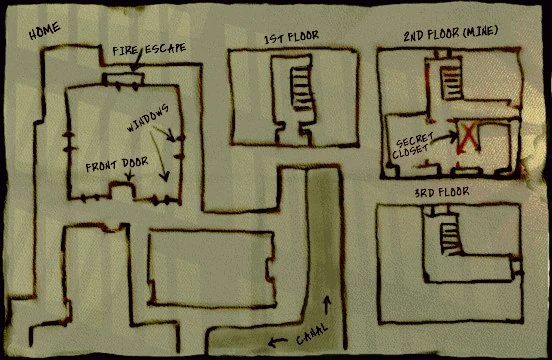 HOME
FIRE ESCAPE
WINDOWS
FRONT DOOR
1ST FLOOR
2ND FLOOR (MINE)
SECRET
CLOSET
3RD FLOOR
CANAL